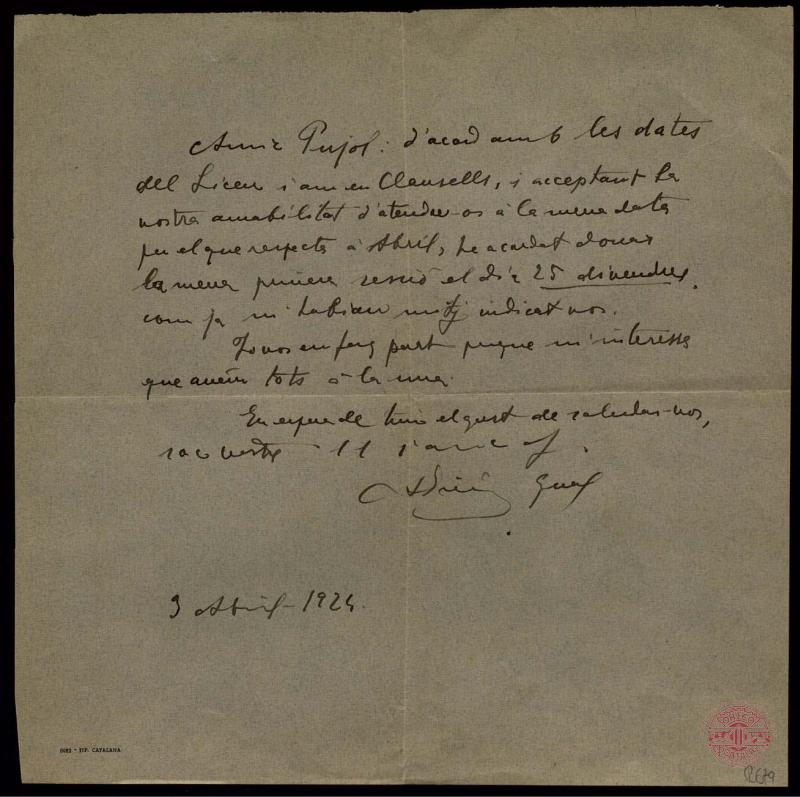 Amic Pujol: d'acord amb les dates
del Liceu i am en Clausells, i acceptant la
vostra amabilitat d'atendre-os á la meva data
per el que respecta á Abril, he acordat donar
la meva primera sessió el dia 25 divendres,
com ja m'habieu mitj indicat vos.
Jo vos en faig part puque m'interessa
que aném tots á la una.
En espera de tenir el gust de saludar-vos,
soc vostre
Adriá Gual
3 Abril-1924.
0082 - TIP. CATALANA
ORFEÓ CATALÀ